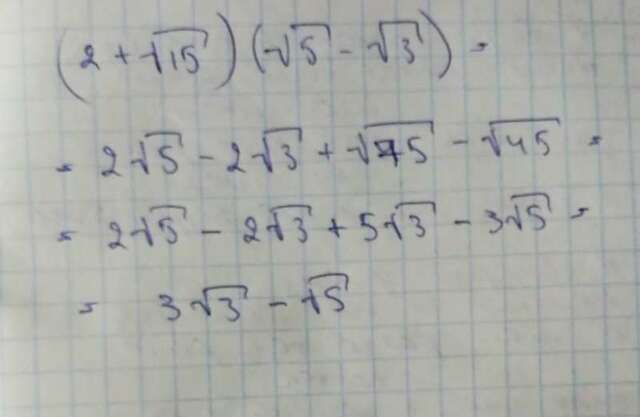 (2 + √15)(√5 - √3) =
= 2√5 - 2√3 + √75 - √45 =
= 2√5 - 2√3 + 5√3 - 3√5 =
= 3√3 - √5